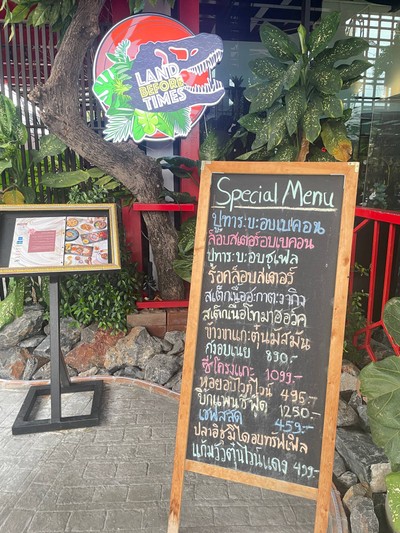 LAND
BEFORE
TIMES
Special Menu
ปูทาระบะอบเบคอน
ล็อบสเตอร์อบเบคอน
ปูทาระบะอบซูเฟล
ร็อคล็อบสเตอร์
สเต็กเนื้อฮิดะวากิว
สเต็กเนื้อโทมาฮอว์ค
ข้าวขาแกะตุ๋นมัสมั่น
ครัวอบเนย 890.-
ซี่โครงแกะ 1099.-
หอยอบไวท์ไวน์ 495.-
บิ๊กแพนซีฟู้ด 1250.-
เชฟสลัด 459.-
ปลาฮิราเมะโดอบทรัฟเฟิล
แก้มวัวตุ๋นไวน์แดง 499.-